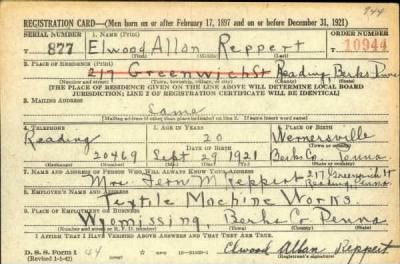 944
REGISTRATION CARD—(Men born on or after February 17, 1897 and on or before December 31, 1921)
SERIAL NUMBER 1. NAME (Print) ORDER NUMBER
T 877 Elwood Allan Reppert 10944
2. PLACE OF RESIDENCE (Print)
217 Greenwich St Reading, Berks Penna
(Number and street) (Town, township, village, or city) (County) (State)
[THE PLACE OF RESIDENCE GIVEN ON THE LINE ABOVE WILL DETERMINE LOCAL BOARD
JURISDICTION; LINE 2 OF REGISTRATION CERTIFICATE WILL BE IDENTICAL]
3. MAILING ADDRESS
Same
[Mailing address if other than place indicated on line 2. If same insert word same]
4. TELEPHONE 5. AGE IN YEARS 6. PLACE OF BIRTH
Reading 20 Wernersville
DATE OF BIRTH (Town or county)
20469 Sept 29 1921 Berks Co. Penna
(Exchange) (Number) (Mo.) (Day) (Yr.) (State or country)
7. NAME AND ADDRESS OF PERSON WHO WILL ALWAYS KNOW YOUR ADDRESS
Mrs. Fern M Reppert 217 Greenwich St Reading, Penna
8. EMPLOYER'S NAME AND ADDRESS
Textile Machine Works
9. PLACE OF EMPLOYMENT OR BUSINESS
Wyomissing, Berks Co Penna
(Number and street or R. F. D. number) (Town) (County) (State)
I AFFIRM THAT I HAVE VERIFIED ABOVE ANSWERS AND THAT THEY ARE TRUE.
D. S. S. Form 1 Elwood Allan Reppert
(Revised 1-1-42) (Registrant's signature)